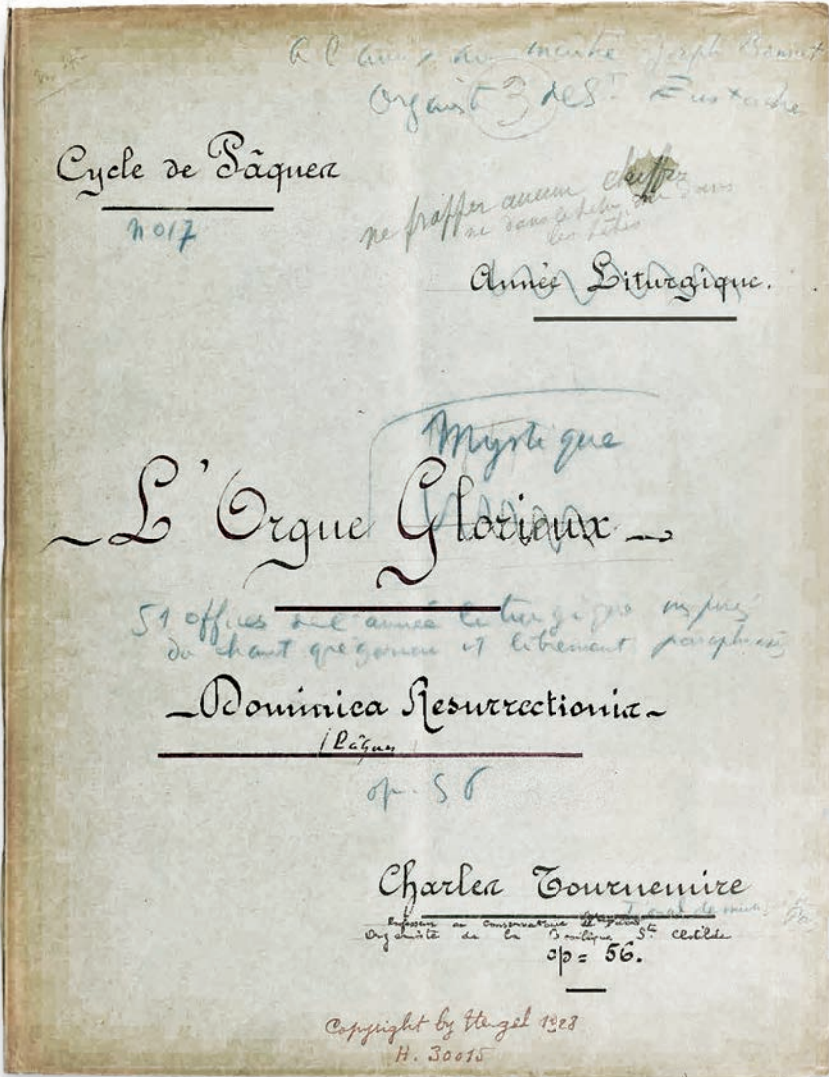 Joseph Bonnet
Organiste de St Eustache
3
Cycle de Pâques
n° 17
ne frapper aucun chiffre
ni dans le texte, ni dans
les têtes
Année Liturgique.
Mystique
L'Orgue Glorieux
51 offices de l'année liturgique inspirés
du chant grégorien et librement paraphrasés
Dominica Resurrectionis
(Pâques)
op. 56
Charles Tournemire
Professeur au Conservatoire de Paris
Organiste de la Basilique Ste Clotilde
op = 56.
Copyright by Heugel 1928
H. 30015